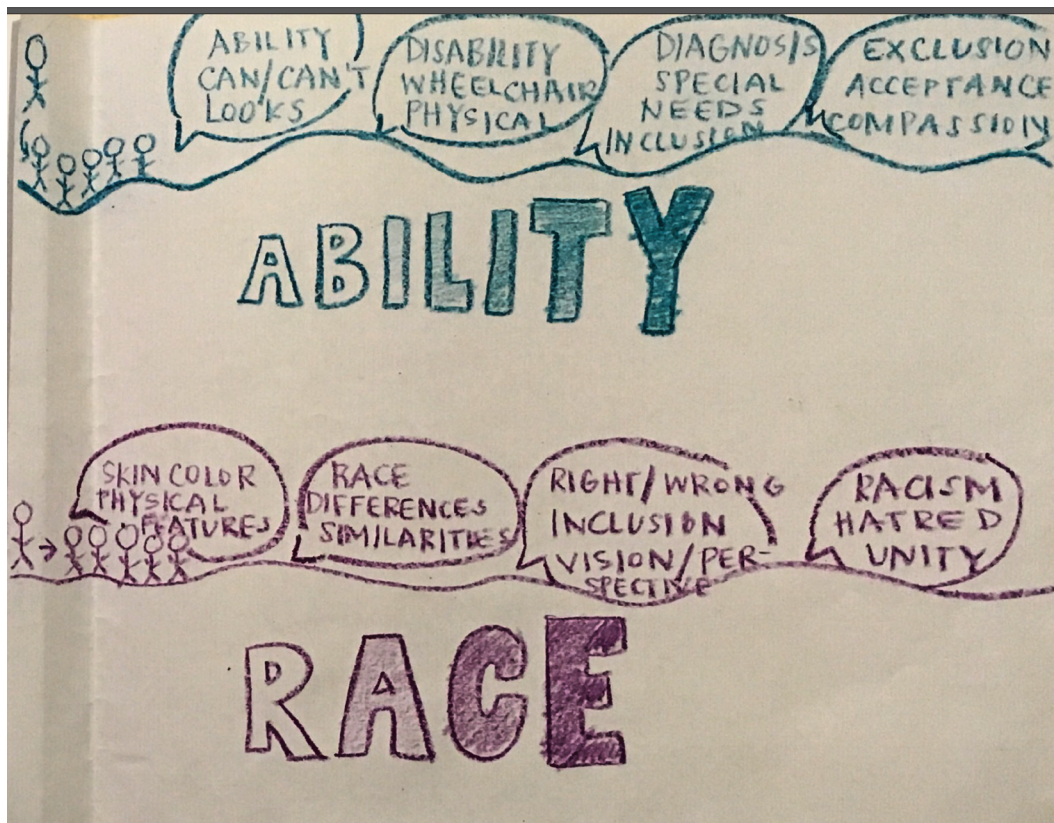 ABILITY
CAN/CAN'T
LOOKS
DISABILITY
WHEELCHAIR
PHYSICAL
DIAGNOSIS
SPECIAL
NEEDS
INCLUSION
EXCLUSION
ACCEPTANCE
COMPASSION
ABILITY
SKIN COLOR
PHYSICAL
FEATURES
RACE
DIFFERENCES
SIMILARITIES
RIGHT/WRONG
INCLUSION
VISION/PER-
SPECTIVE
RACISM
HATRED
UNITY
RACE